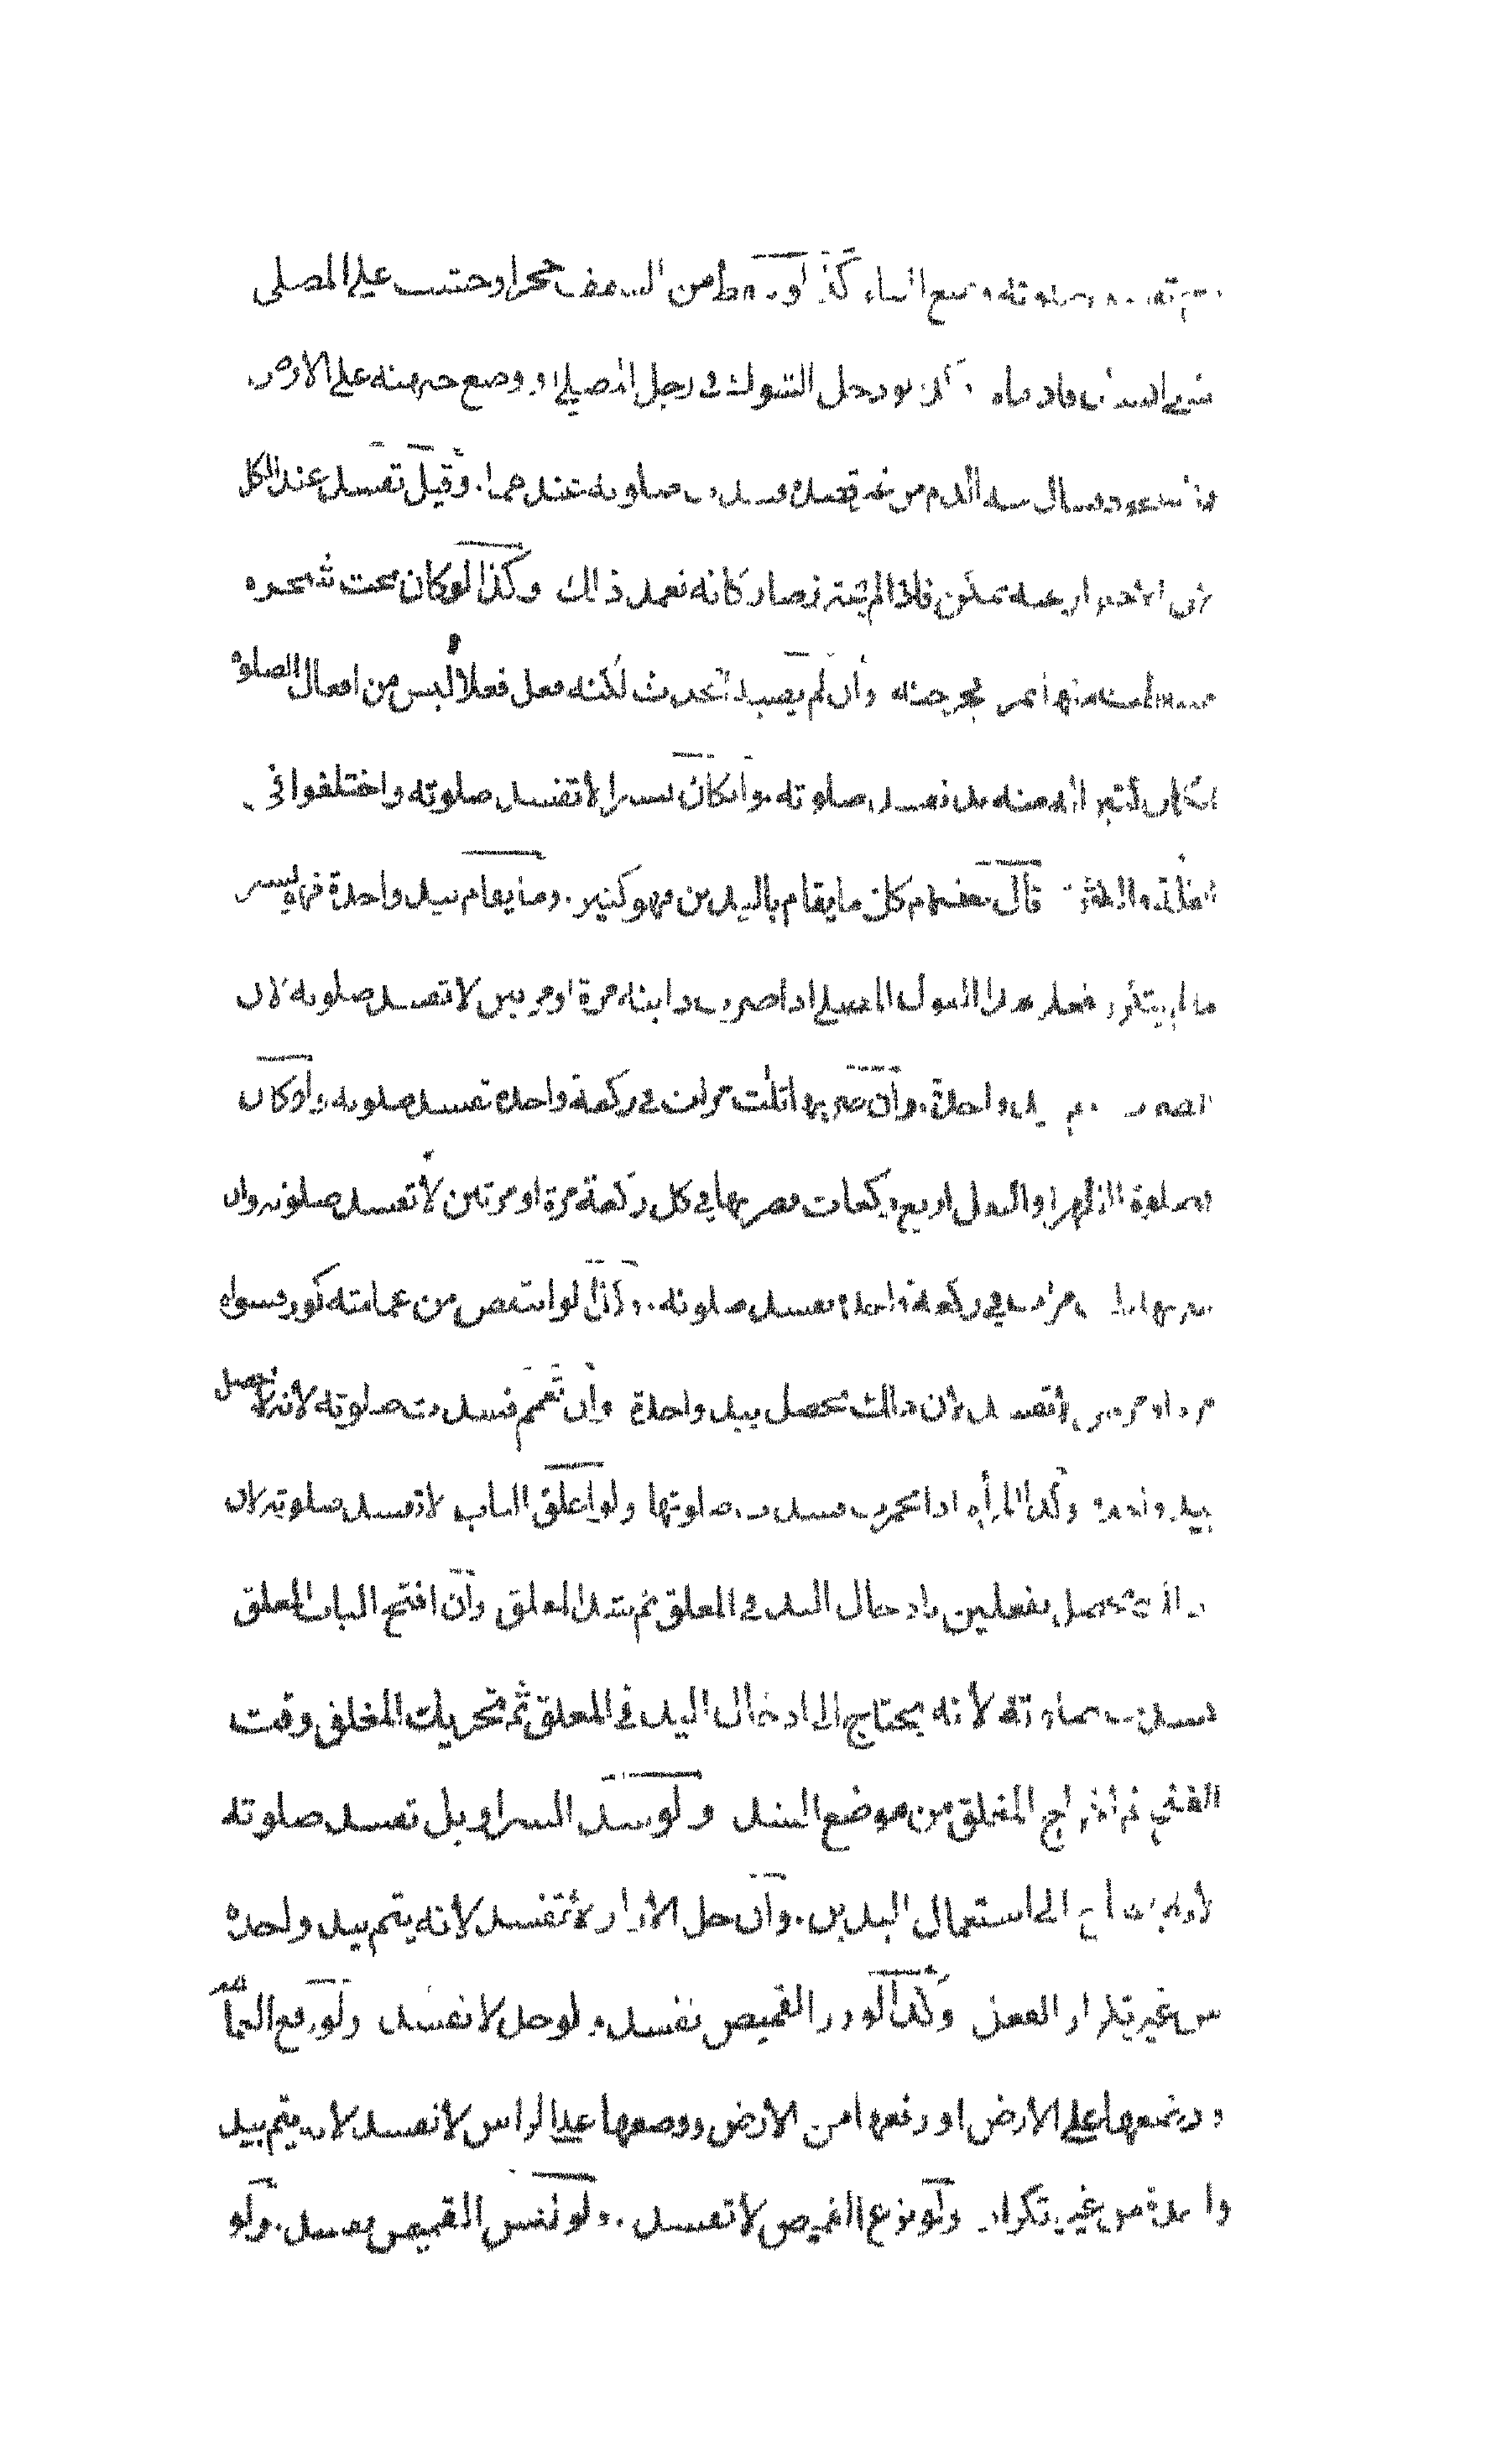 صلوته ومنع البناء كذا لو سقط من السقف حجر او خشب على المصلى
فادماه وكذا لو دخل الشوك فى رجل المصلى او وضع جبهته على الارض
وسال منه الدم من غير قصده فسدت صلوته عندهما. وقيل تفسد عند الكل
لان فاذا لم يحترز صار كانه فعل ذلك وكذا لو كان تحت شجرة
فجرحته وان لم يصبه الحدث لكنه فعل فعلا ليس من افعال الصلوة
ان كان كثيرا منه تفسد صلوته. وان كان يسيرا لا تفسد صلوته واختلفوا فى
قال بعضهم كل ما يقام باليدين فهو كثير. وما يقام بيد واحدة فهو يسير
ما لم يتكرر فعلى هذا القول المصلى اذا ضرب دابته مرة او مرتين لا تفسد صلوته لان
الضرب يتم بيد واحدة. وان ضربها ثلث مرات فى ركعة واحدة تفسد صلوته وان كان
صلوة الظهر او اربع ركعات فضربها فى كل ركعة مرة او مرتين لا تفسد صلوته وان
ضربها ثلث مرات فى ركعة واحدة تفسد صلوته. وكذا لو انتقض من عمامته كور فسواه
مرة او مرتين لا تفسد لان ذلك يحصل بيد واحدة وان تعمم فسدت صلوته لانه لا يحصل
بيد واحدة وكذا المرأة اذا تخمرت فسدت صلوتها ولو اغلق الباب لا تفسد صلوته لان
ذلك يحصل بفعلين بادخال اليد فى المغلق ثم بشد المغلق وان افتح الباب المغلق
فسدت صلوته لانه يحتاج الى ادخال اليد فى المغلق ثم تحريك المغلق وقت
الفتح ثم اخراج المغلق من موضع السد ولو شد السراويل تفسد صلوته
لانه يحتاج الى استعمال اليدين. وان حل الازار لا تفسد لانه يتم بيد واحدة
من غير تكرار الفعل وكذا لو زر القميص تفسد ولو حل لا تفسد ولو رفع العمامة
ووضعها على الارض او رفعها من الارض ووضعها على الراس لا تفسد لانه يتم بيد
واحدة من غير تكرار ولو نزع القميص لا تفسد. ولو لبس القميص تفسد. ولو